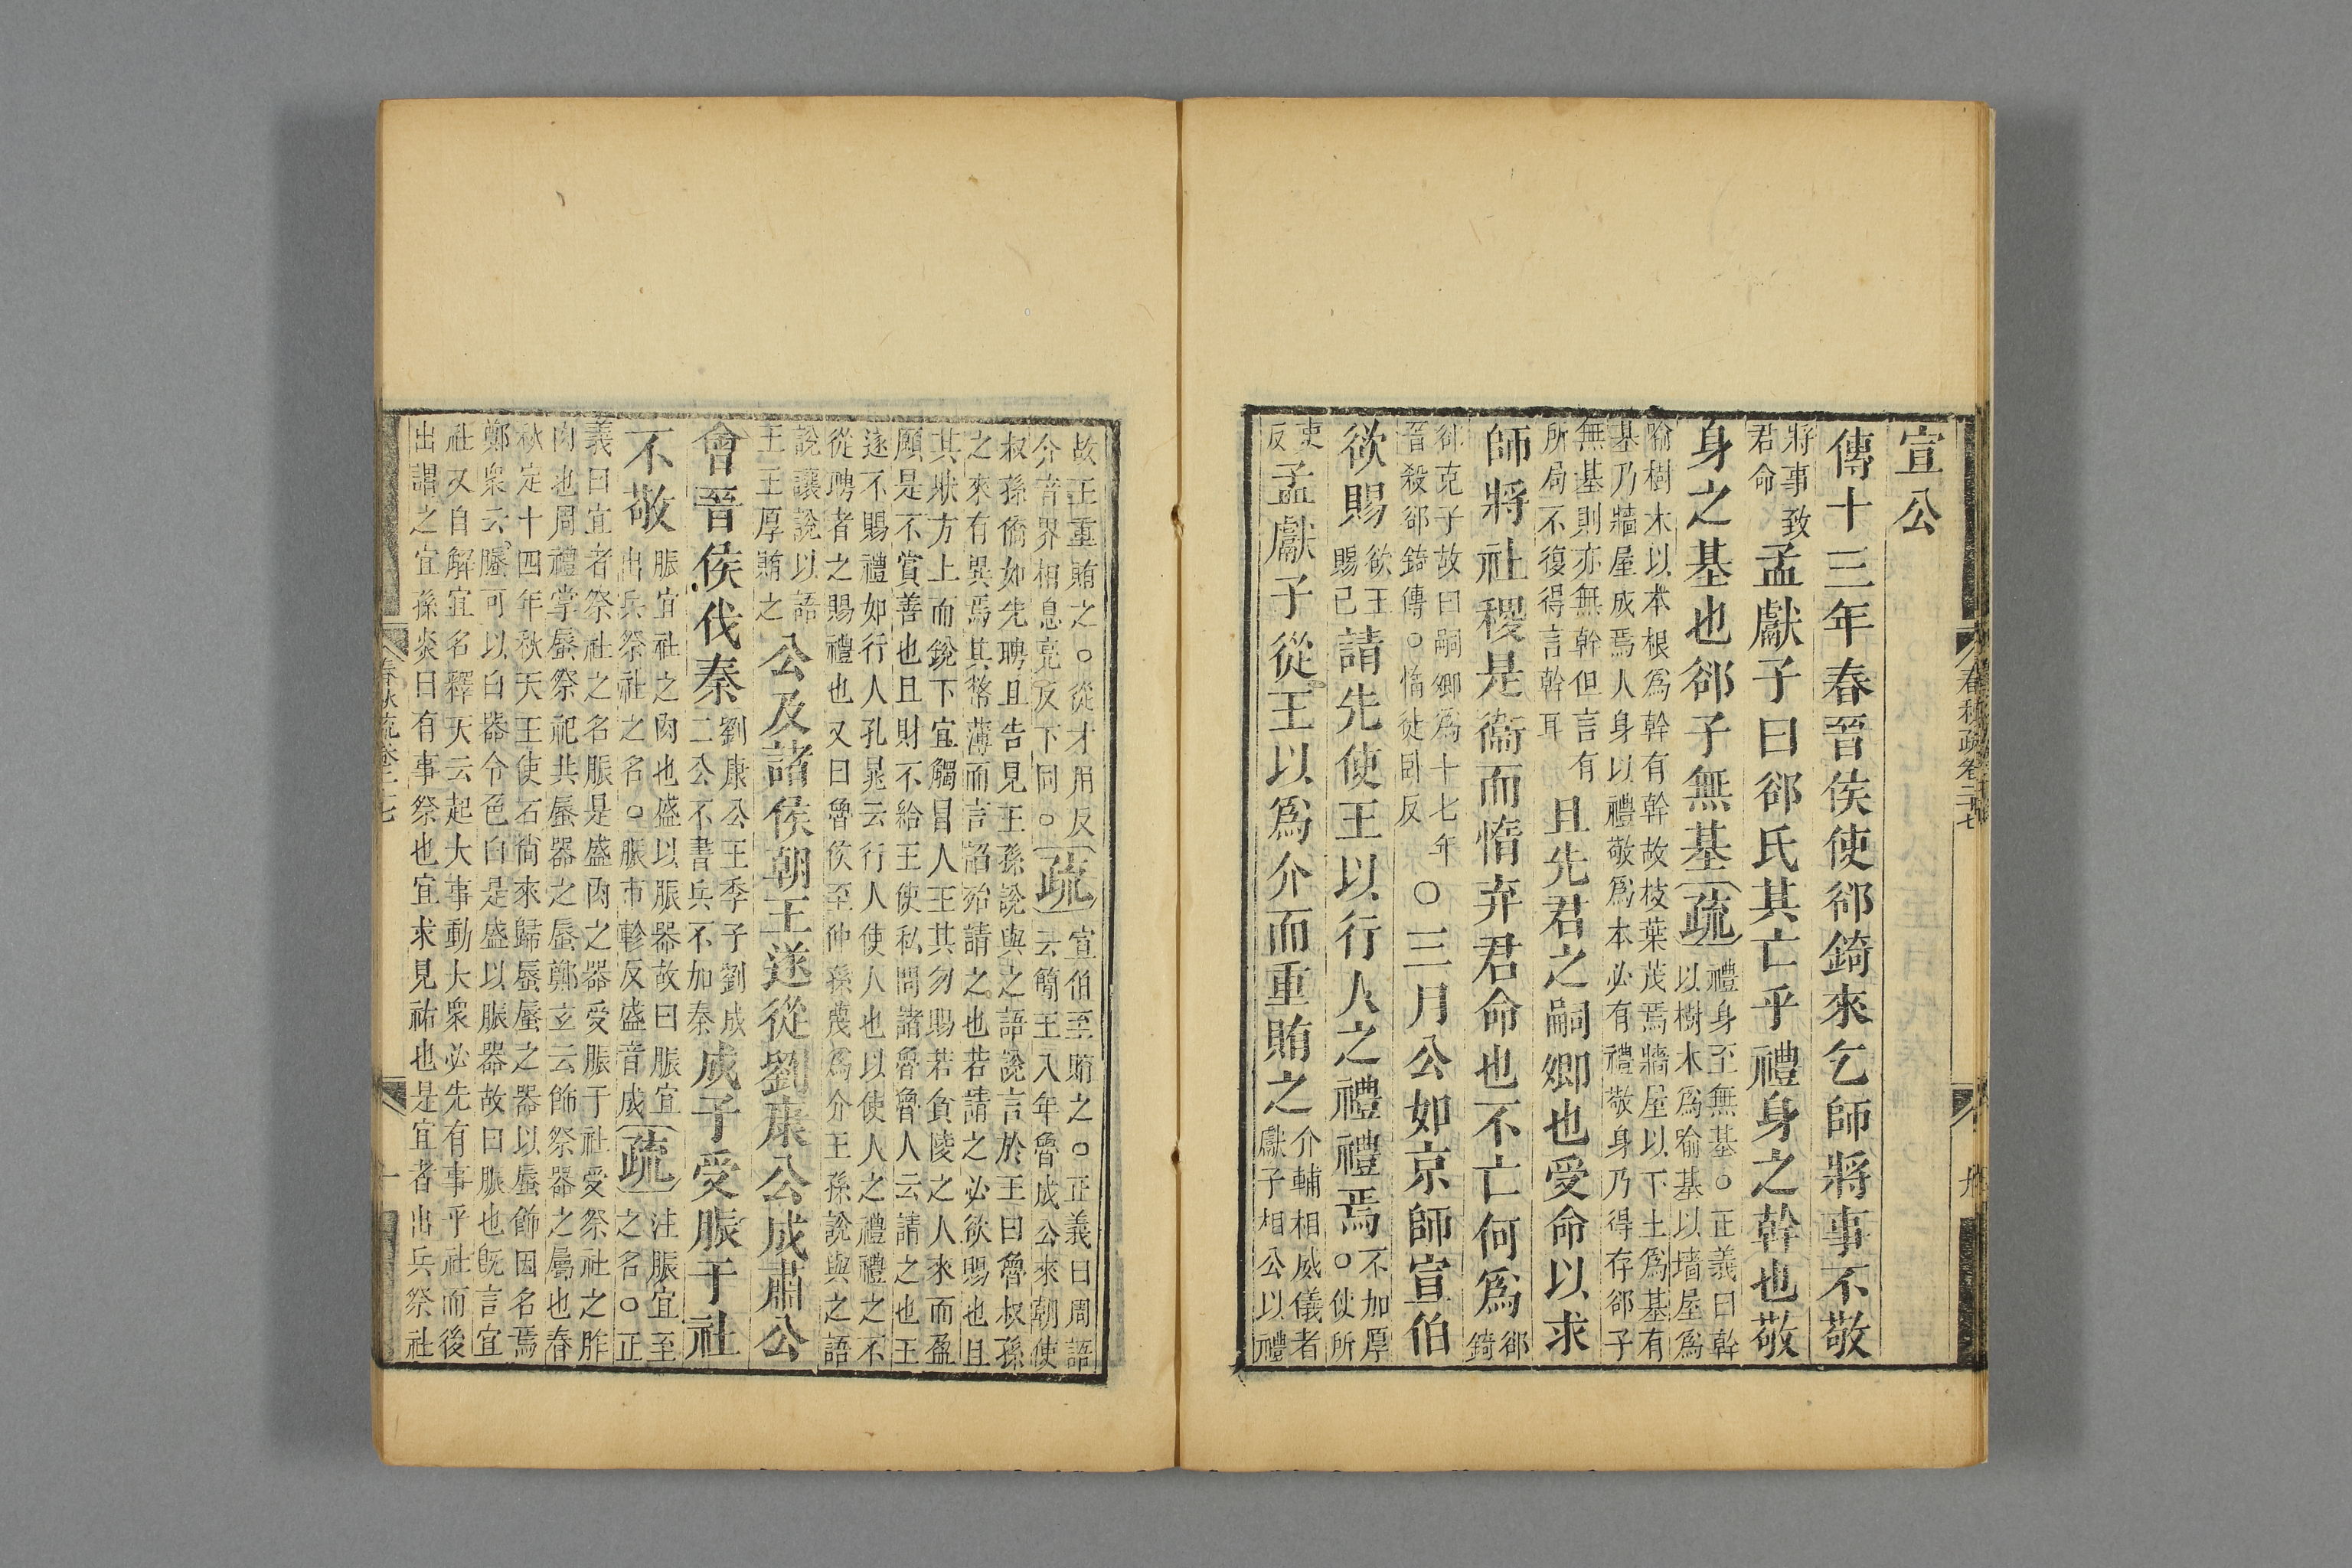 宣公
傳十三年春晉侯使郤錡來乞師將事不敬
將事致君命孟獻子曰郤氏其亡乎禮身之幹也敬
身之基也郤子無基疏禮身至無基○正義曰幹以樹木爲喻基以墻屋爲
喻樹木以本根爲幹有幹故枝葉茂焉牆屋以下土爲基有
基乃牆屋成焉人身以禮敬爲本必有禮敬身乃得存郤子
無基則亦無幹但言有所局不復得言幹耳且先君之嗣卿也受命以求
師將社稷是衞而惰弃君命也不亡何爲郤錡
郤克子故曰嗣卿爲十七年晉殺郤錡傳○惰徒卧反○三月公如京師宣伯
欲賜欲王賜己請先使王以行人之禮禮焉不加厚○使所
吏反孟獻子從王以爲介而重賄之介輔相威儀者獻子相公以禮
故王重賄之○從才用反介音界相息亮反下同○疏宣伯至賄之○正義曰周語云簡王八年魯成公來朝使
叔孫僑如先聘且告見王孫說與之語說言於王曰魯叔孫
之來有異焉其幣薄而言諂殆請之也若請之必欲賜也且
其狀方上而銳下宜觸冒人王其勿賜若貪陵之人來而盈
願是不賞善也且財不給王使私問諸魯魯人云請之也王
遂不賜禮如行人孔晁云行人使人也以使人之禮禮之不
從聘者之賜禮也又曰魯侯至仲孫蔑爲介王孫說與之語
說讓說以語王王厚賄之公及諸侯朝王遂從劉康公成肅公
會晉侯伐秦劉康公王季子劉成二公不書兵不加秦成子受脤于社
不敬脤宜社之肉也盛以脤器故曰脤宜出兵祭社之名○脤市軫反盛音成疏注脤宜至之名○正
義曰宜者祭社之名脤是盛肉之器受脤于社受祭社之胙
肉也周禮掌蜃祭祀共蜃器之蜃鄭玄云飾祭器之屬也春
秋定十四年秋天王使石尙來歸蜃蜃之器以蜃飾因名焉
鄭衆云蜃可以白器令色白是盛以脤器故曰脤也旣言宜
社又自解宜名釋天云起大事動大衆必先有事乎社而後
出謂之宜孫炎曰有事祭也宜求見祐也是宜者出兵祭社